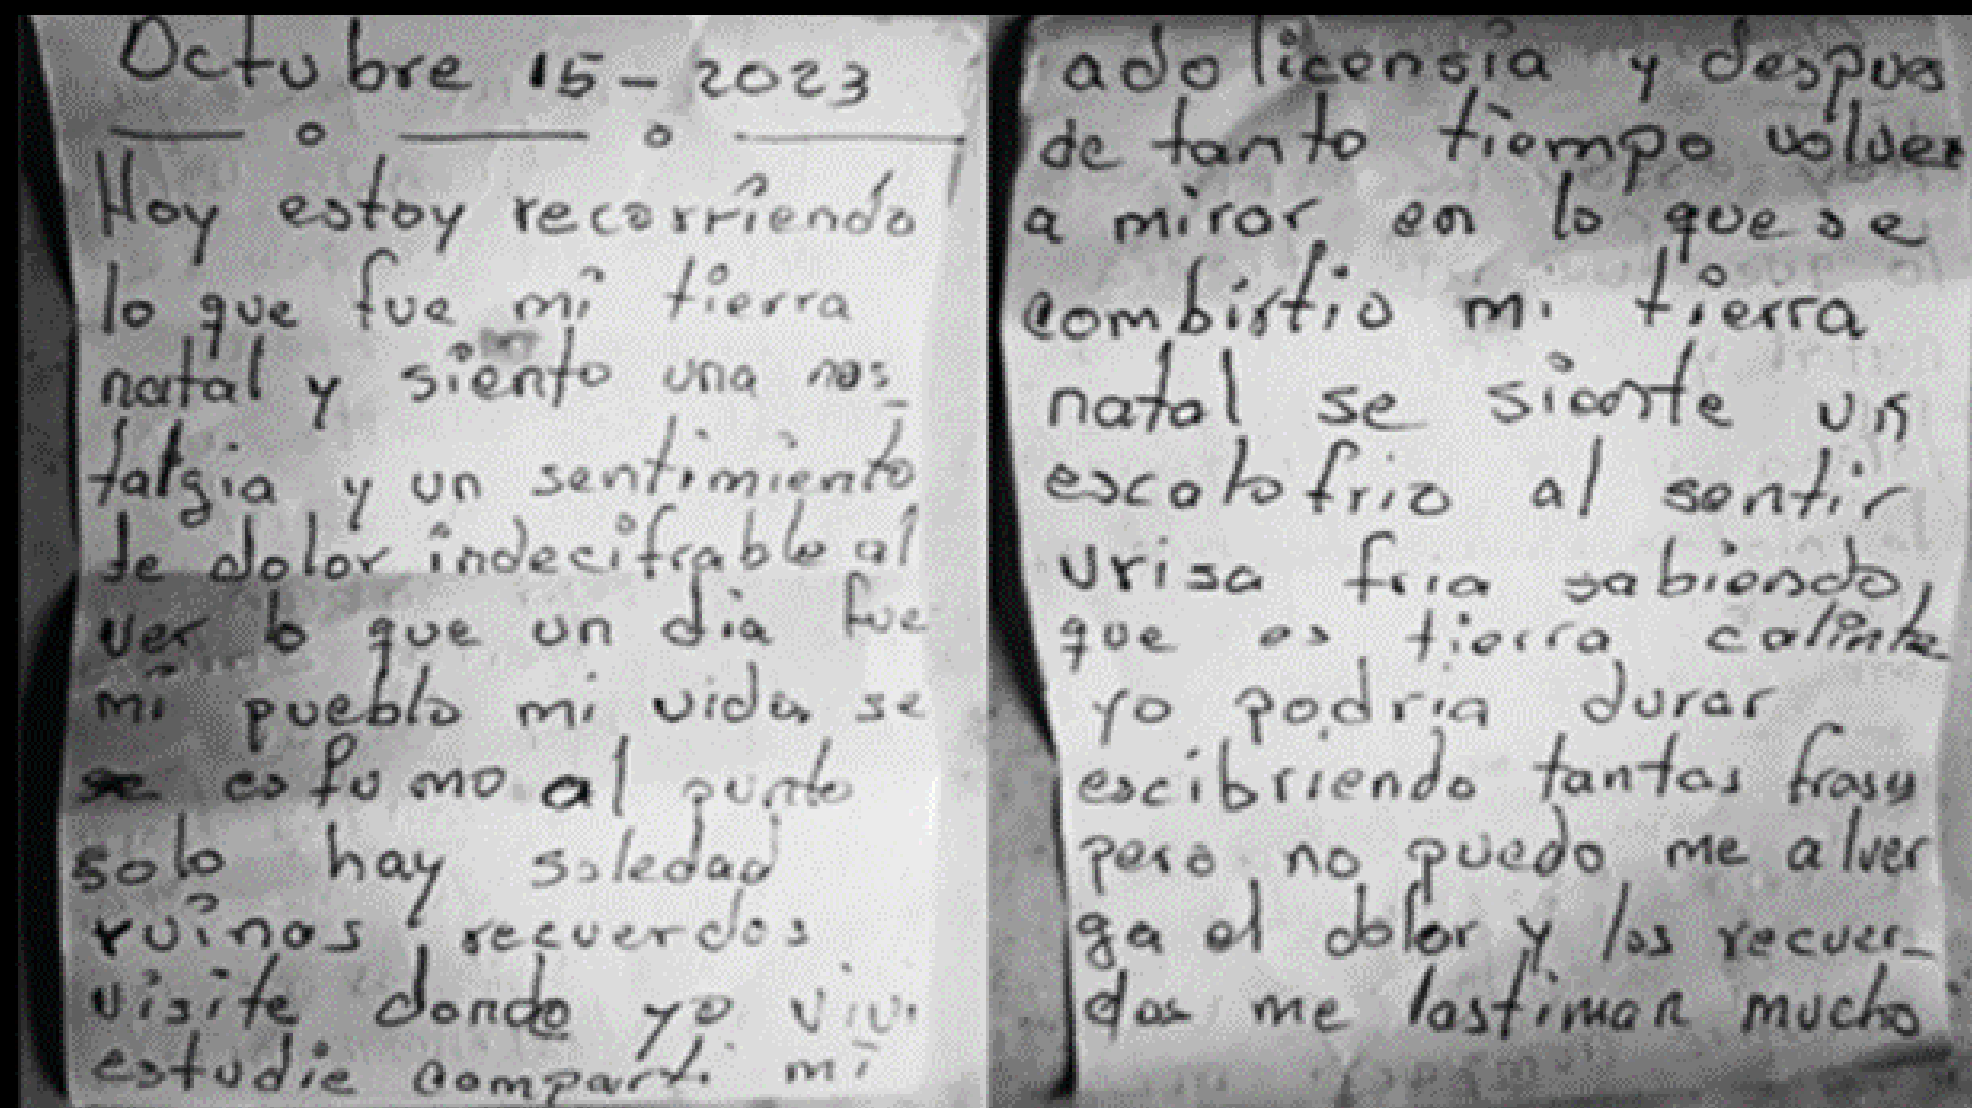 Octubre 15-2023
Hoy estoy recorriendo
lo que fue mi tierra
natal y siento una nos_
talgia y un sentimiento
de dolor indecifrable al
ver lo que un dia fue
mi pueblo mi vida se
se esfumo al punto
solo hay soledad
ruinas, recuerdos
visite donde yo vivi
estudie comparti mi
adolicensia y despues
de tanto tiempo volver
a mirar en lo que se
combirtio mi tierra
natal se siente un
escalofrio al sentir
vrisa fria sabiendo,
que es tierra calinte
yo podria durar
escibriendo tantas frases
pero no puedo me alver
ga el dolor y los recuer-
dos me lastiman mucho